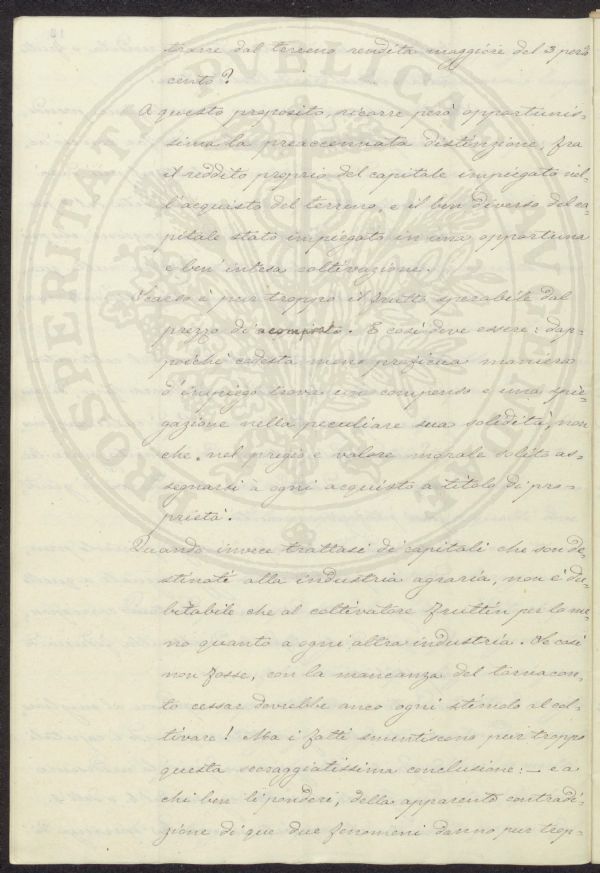 trarre dal terreno rendita maggiore del 3 per%
cento?
A questo proposito, ricorre però opportunis-
sima la preaccennata distinzione, fra
il reddito proprio del capitale impiegato nel-
l'acquisto del terreno, e il ben diverso del ca-
pitale stato impiegato in una opportuna
e ben' intesa coltivazione.
Scarso è pur troppo il frutto sperabile dal
prezzo di acompisto. E così deve essere: dap-
poichè codesta meno proficua maniera
d'impiego trova un compenso e una spie-
gazione nella peculiare sua solidità, non
che, nel pregio e valore morale solito as-
segnarsi a ogni acquisto a titolo di pro-
prietà.
Quando invece trattasi di capitali che son de-
stinati alla industria agraria, non è du-
bitabile che al coltivatore fruttin per lo me-
no quanto a ogni altra industria. Se così
non fosse, con la mancanza del tornacon-
to cessar dovrebbe anco ogni stimolo al col-
tivare! Ma i fatti smentiscono pur troppo
questa scoraggiatissima conclusione: – e a
chi ben li ponderi, della apparente contradi-
zione di que' due fenomeni danno pur trop-
PROSPERITATI PUBLICAE AUGENDAE